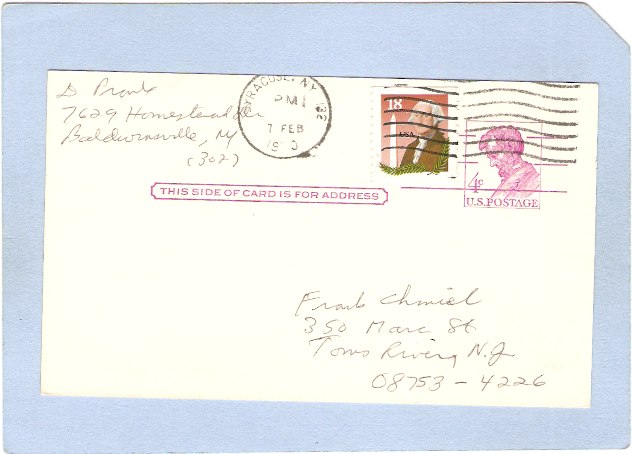 D Pronk
7629 Homestead Dr
Baldwinsville, NY
(302)
SYRACUSE, NY 132
PM
7 FEB
18
USA
4¢
U.S. POSTAGE
THIS SIDE OF CARD IS FOR ADDRESS
Frank Chmiel
350 Marc St
Toms River, N.J
08753-4226